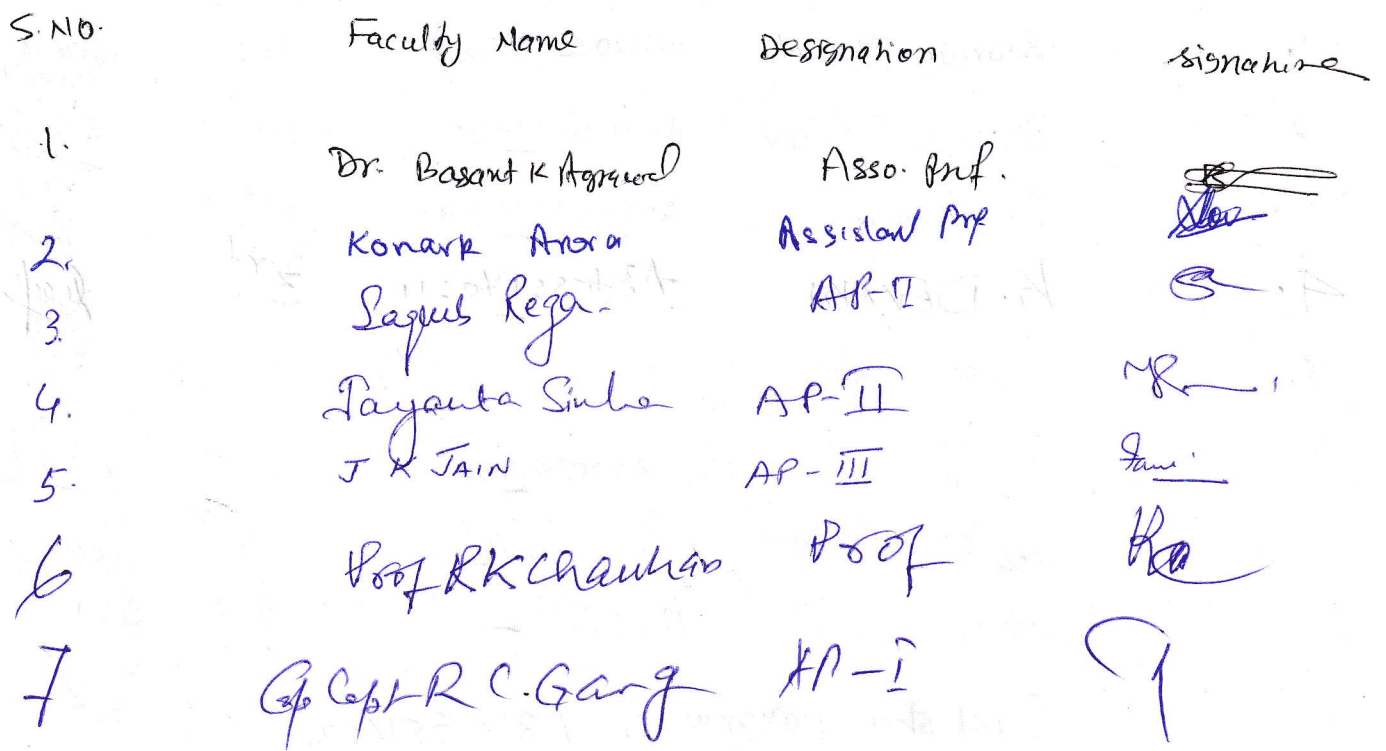 S. NO. Faculty Name Designation Signature
1. Dr. Basant K Agrawal Asso. Prof.
2. Konark Arora Assistant Prof
3. Saquib Reza. AP-II
4. Jayanta Sinha AP-II
5. J K JAIN AP-III
6 Prof RK Chauhan Prof
7 Gp Capt R C. Garg AP-I